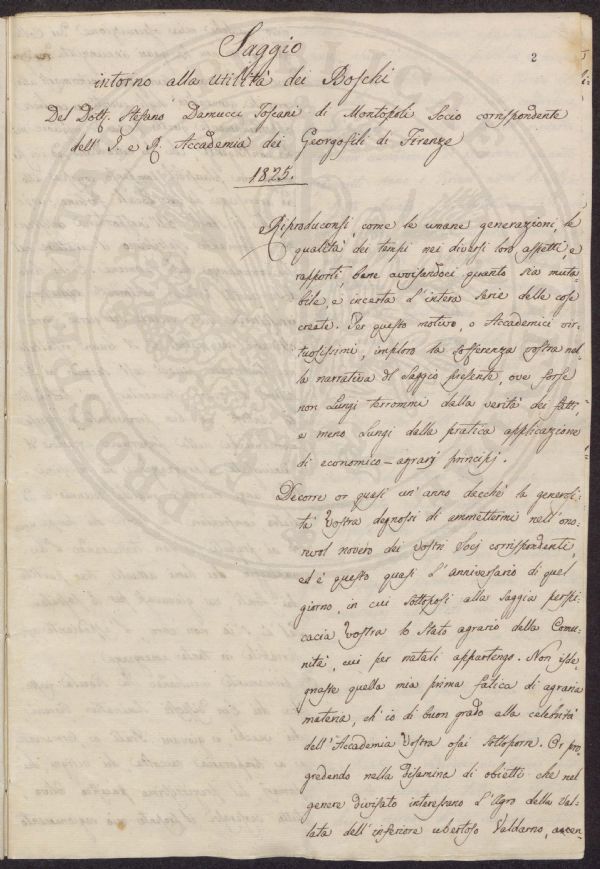 2
Saggio
intorno alla utilità dei Boschi
Del Dott. Stefano Damucci Toscani di Montopoli Socio corrispondente
dell' I. e R. Accademia dei Georgofili di Firenze
1825.
Riproduconsi come le umane generazioni, le
qualità dei tempi nei diversi loro aspetti, e
rapporti, bene avvisandoci quanto sia muta-
bile, e incerta l'intera serie delle cose
create. Per questo motivo, o Accademici vir-
tuosissimi, imploro la sofferenza vostra nel-
la narrativa del Saggio presente, ove forse
non Lungi terrommi dalla verità dei fatti,
e meno Lungi dalla pratica applicazione
di economico-agrarj principj.
Decorre or quasi un'anno dacchè la generosi-
tà Vostra degnossi di ammettermi nell'ono-
revol novero dei vostri Socj corrispondenti,
ed è questo quasi l'anniversario di quel
giorno, in cui sottoposi alla saggia perspi-
cacia Vostra lo Stato agrario della Comu-
nità, cui per natali appartengo. Non isde-
gnasse quella mia prima fatica di agraria
materia, ch'io di buon grado alla celebrità
dell'Accademia Vostra osai sottoporre. Or pro-
gredendo nella disamina di obietti che nel
genere divisato interessano l'Agro della Val-
lata dell'inferiore ubertoso Valdarno, accen-